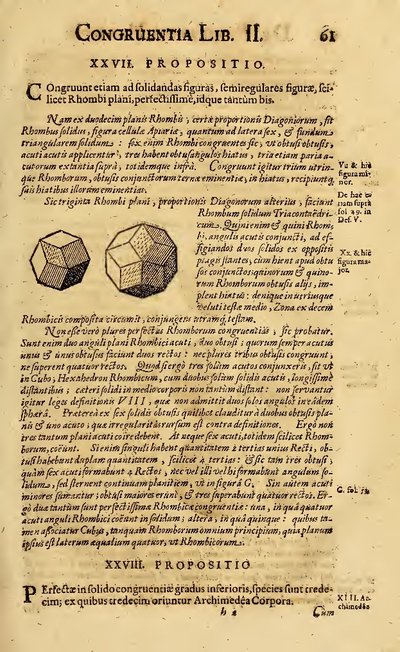 CONGRUENTIA LIB. II. 61
XXVII. PROPOSITIO.
COngruunt etiam ad solidandas figuras, semiregulares figuræ, sci-
licet Rhombi plani, perfectissimè, idque tantùm bis.
Nam ex duodecim planis Rhombis, certæ proportionis Diagoniorum, fit
Rhombus solidus, figura cellulæ Apiariæ, quantum ad latera sex, & fundum
triangularem solidum: sex enim Rhombi congruentes sic, vt obtusis obtusi,
acuti acutis applicentur, tres habent obtusangulos hiatus, tria etiam paria a-
cutorum extantia suprà, totidemque infrà. Congruunt igitur trium utrin-
que Rhomborum, obtusis conjunctorum ternæ eminentiæ, in hiatus, recipiuntq;
suis hiatibus illorum eminentias.
Sic triginta Rhombi plani, proportionis Diagonorum alterius, faciunt
Rhombum solidum Triacontaëdri-
cum. Quini enim & quini Rhom-
bi angulis acutis conjuncti, ad ef-
figiandos duos solidos ex oppositis
plagis stantes, cum hient apud obtu-
sos conjunctos quinorum & quino-
rum Rhomborum obtusis alijs, im-
plent hiatus: denique in utriusque
veluti testæ medio, Zona ex decem
Rhombicis composita circumit, conjungens utramq; testam.
Non esse verò plures perfectas Rhomborum congruentias, sic probatur.
Sunt enim duo anguli plani Rhombici acuti, duo obtusi: quorum semper acutus
unus & unus obtusus faciunt duos rectos: nec plures tribus obtusis congruunt,
ne superent quatuor rectos. Quod si ergò tres solùm acutos conjunxeris, fit vt
in Cubo, Hexahedron Rhombicum, cum duobus solùm solidis acutis, longissimè
distantibus: cæteri solidi in medio corporis non tantùm distant: non servantur
igitur leges definitionis VIII, quæ non admittit duos solos angulos in eâdem
sphærâ. Prætereà ex sex solidis obtusis quilibet clauditur à duobus obtusis pla-
nis & uno acuto; quæ irregularitas rursum est contra definitiones. Ergò non
tres tantum plani acuti coire debent. At neque sex acuti, totidem scilices Rhom-
borum, coëunt. Si enim singuli habent quantitatem 2 tertias unius Recti, ob-
tusi habebunt duplam quantitatem, scilicet 4 tertias: & sic tam tres obtusi,
quàm sex acuti formabunt 4 Rectos; nec vel illi vel hi formabunt angulum so-
lidum, sed sternent continuam planitiem, vt in figura G. Sin autem acuti
minores sumantur; obtusi majores erunt, & tres superabunt quatuor rectos. Er-
gò duæ tantùm sunt perfectissimæ Rhombicæ congruentiæ: una, in quâ quatuor
acuti anguli Rhombici coëunt in solidum; altera, in quâ quinque: quibus ta-
men associatur Cubus, tanquam Rhomborum omnium principium, quia planum
ipsius est laterum æqualium quatuor, vt Rhombicorum.
XXVIII. PROPOSITIO
PErfectæ in solido congruentiæ gradus inferioris, species sunt trede-
cim; ex quibus tredecim oriuntur Archimedéa Corpora.
h 2 Cùm
Vu & hîc
figura mi-
nor.
De hac no
tatum
suprà
fol. 29. in
Def. V.
Xx. & hîc
figura ma-
jor.
XIII. Ar-
chimedéa